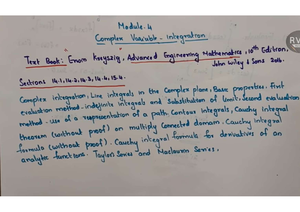 Module - 4
Complex Variable - Integration
Text Book: Erwin Kreyszig, Advanced Engineering Mathematics, 10th Edition,
John Wiley & Sons 2016.
Sections 14.1, 14.2, 14.3, 14.4, 15.4.
Complex integration: Line integrals in the Complex plane, Basic properties. First
evaluation method - indefinite integrals and substitution of limit - second evaluation
method - use of a representation of a path. Contour integrals, Cauchy integral
theorem (without proof) on multiply connected domain. Cauchy integral
formula (without proof). Cauchy integral formula for derivatives of an
analytic functions. Taylor's series and Maclaurin Series.